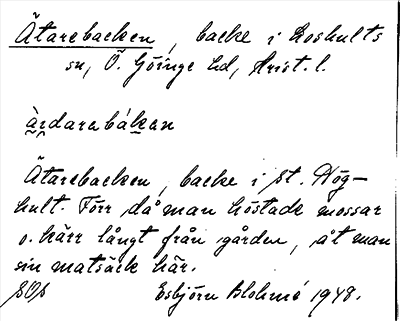 Ätarebacken, backe i Loshults
sn, Ö. Göinge hd, Krist. l.
ä̀rdarabákan
Ätarebacken, backe i St. Hög-
hult. Förr då man höstade mossar
o. kärr långt från gården, åt man
sin matsäck här.
Esbjörn Blohmé 1948.